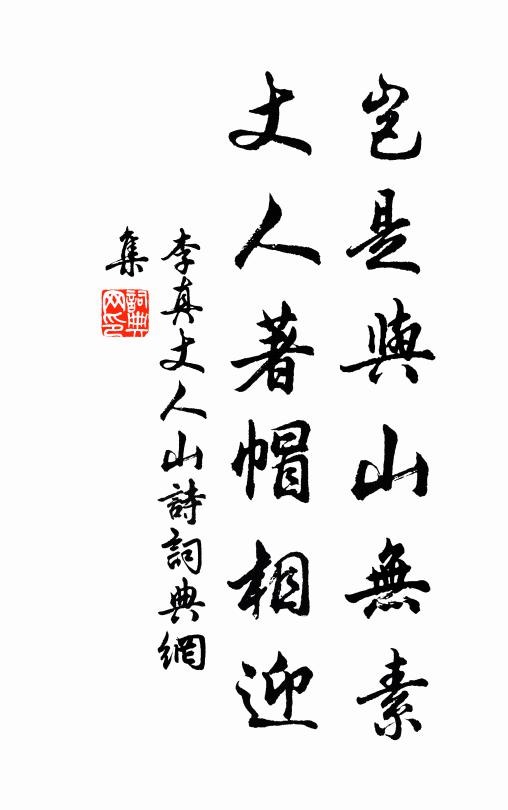 豈是與山無素
丈人著帽相迎
李真丈人山詩詞典網
集
詞典
网印